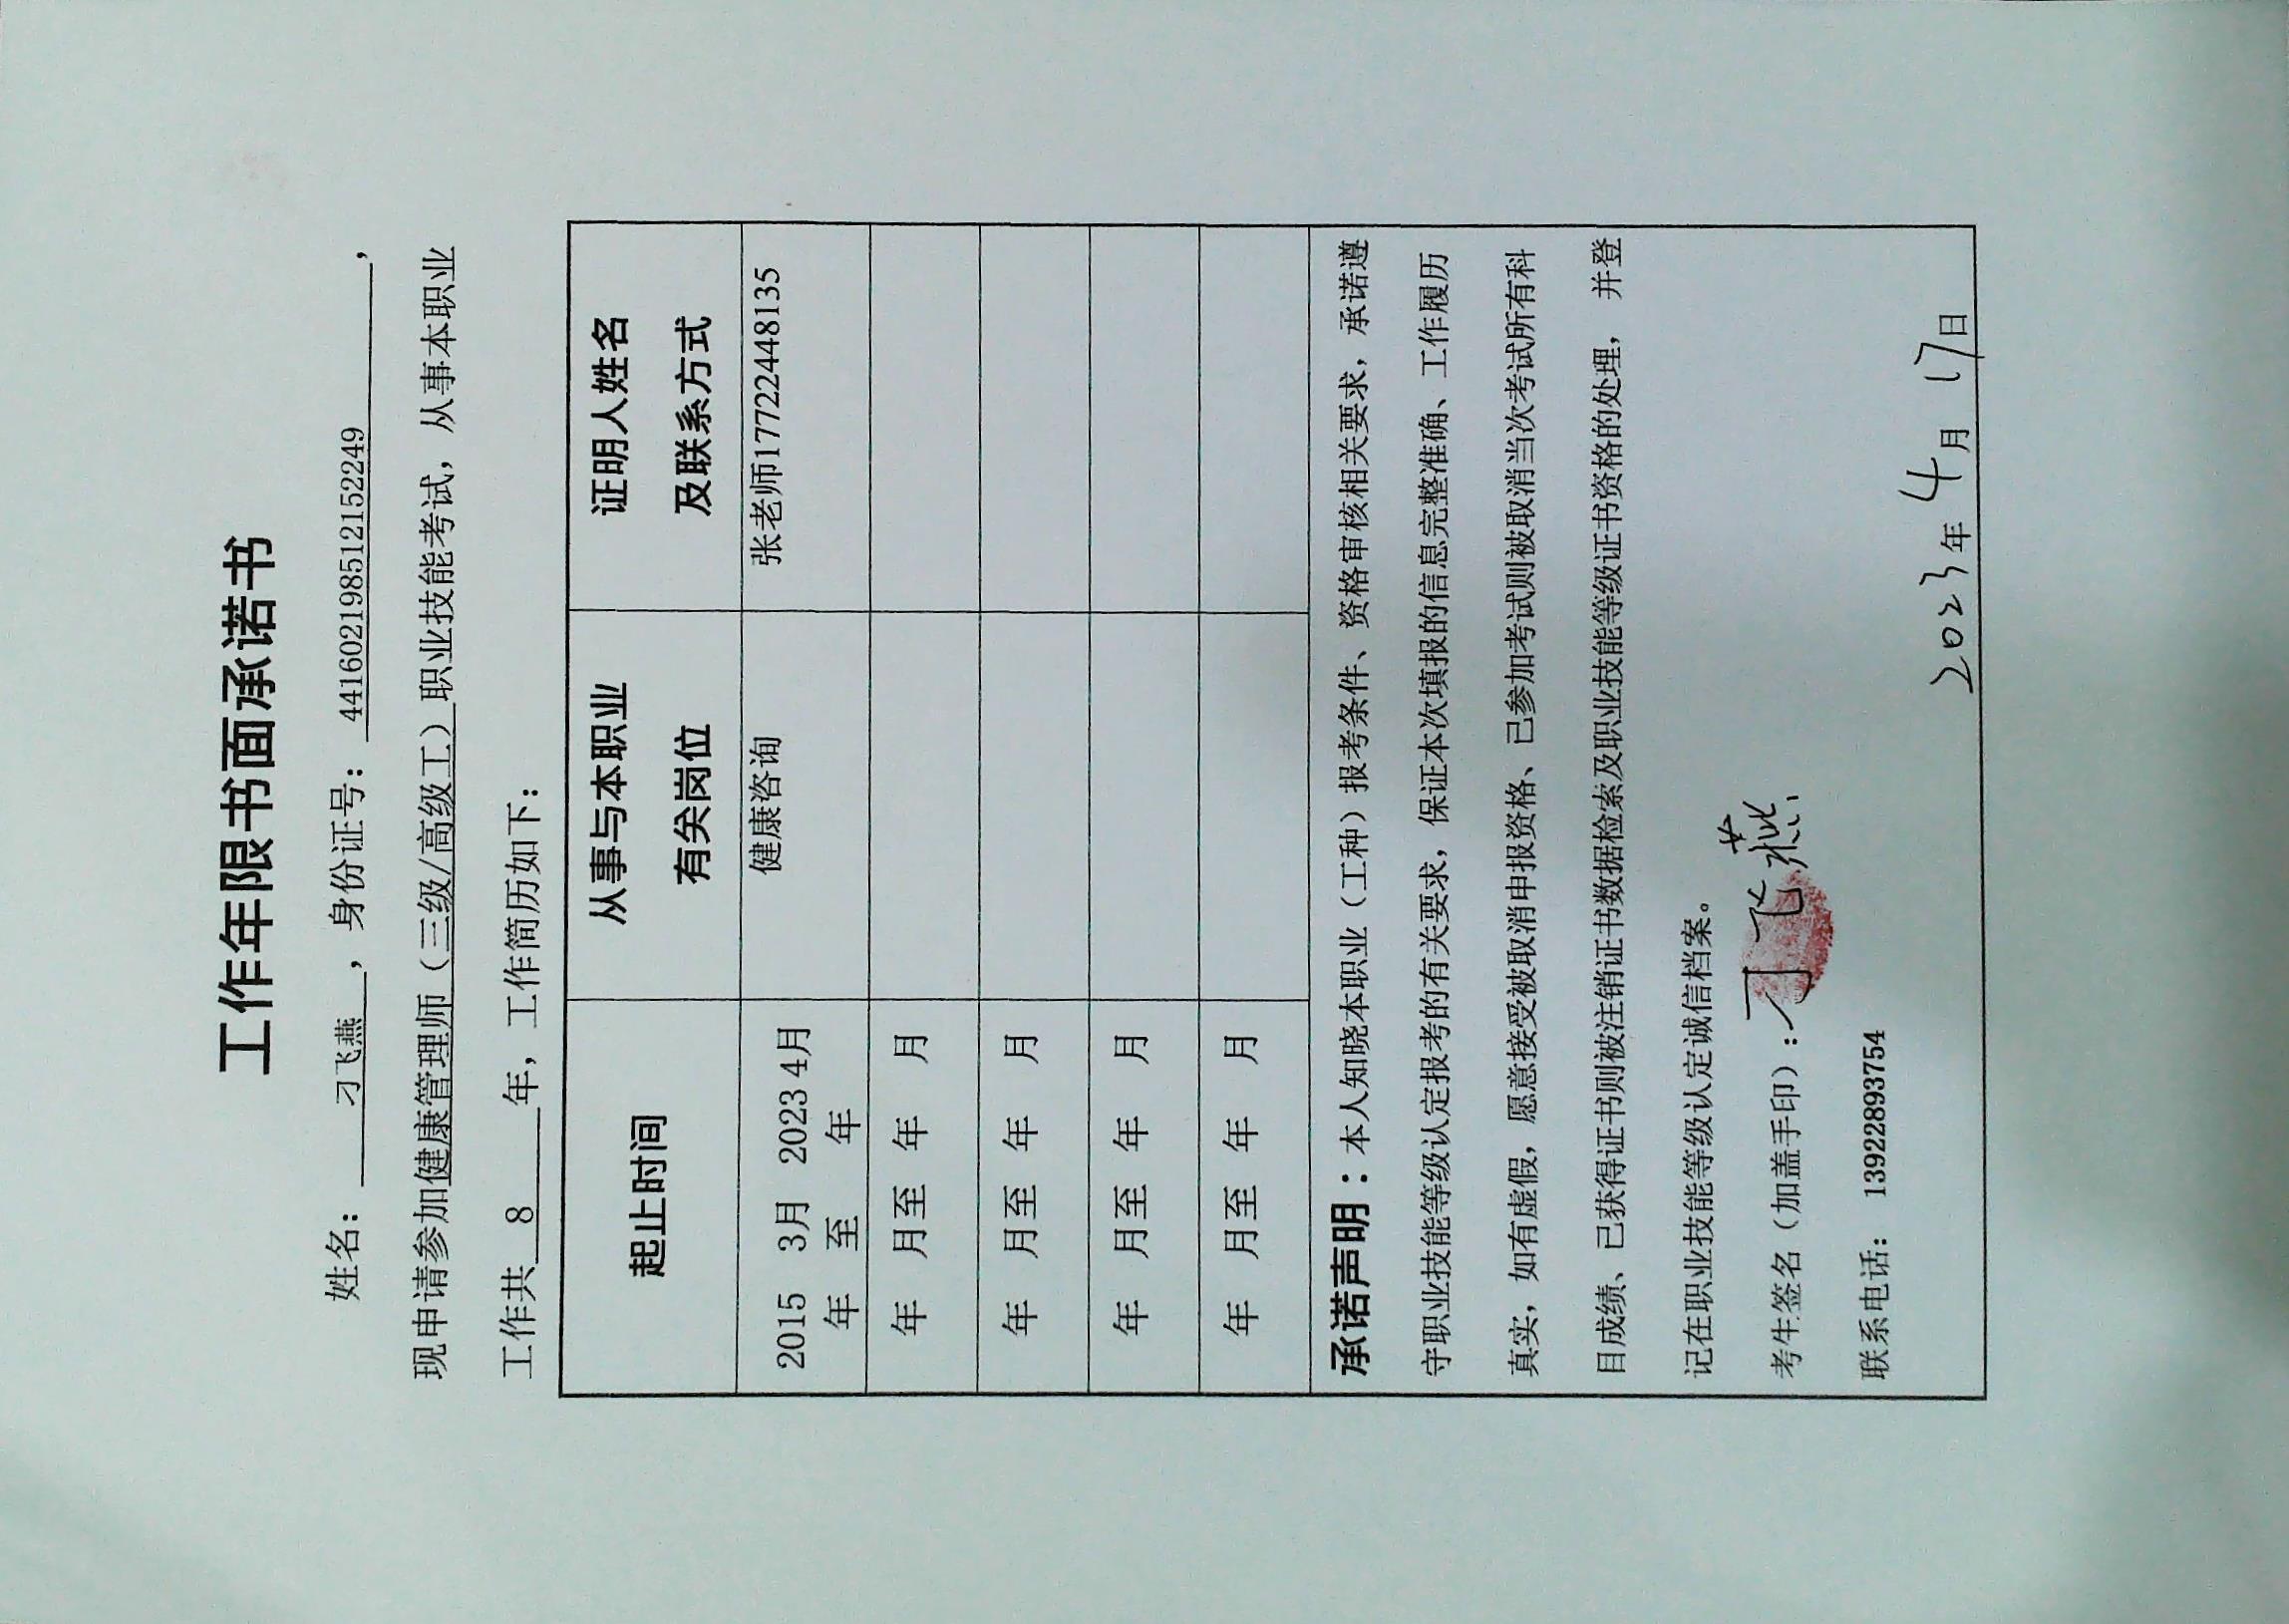 工作年限书面承诺书
姓名： 刁飞燕 ，身份证号： 441602198512152249 ，
现申请参加健康管理师（三级/高级工）职业技能考试，从事本职业
工作共 8 年，工作简历如下：
起止时间 从事与本职业有关岗位 证明人姓名及联系方式
2015 3月 2023 4月 健康咨询 张老师17722448135
年 至 年
年 月至 年 月
年 月至 年 月
年 月至 年 月
年 月至 年 月
承诺声明：本人知晓本职业（工种）报考条件、资格审核相关要求，承诺遵
守职业技能等级认定报考的有关要求，保证本次填报的信息完整准确、工作履历
真实，如有虚假，愿意接受被取消申报资格、已参加考试则被取消当次考试所有科
目成绩、已获得证书则被注销证书数据检索及职业技能等级证书资格的处理， 并登
记在职业技能等级认定诚信档案。
考生签名（加盖手印）：刁飞燕
联系电话： 13922893754
2023年 4月 17日